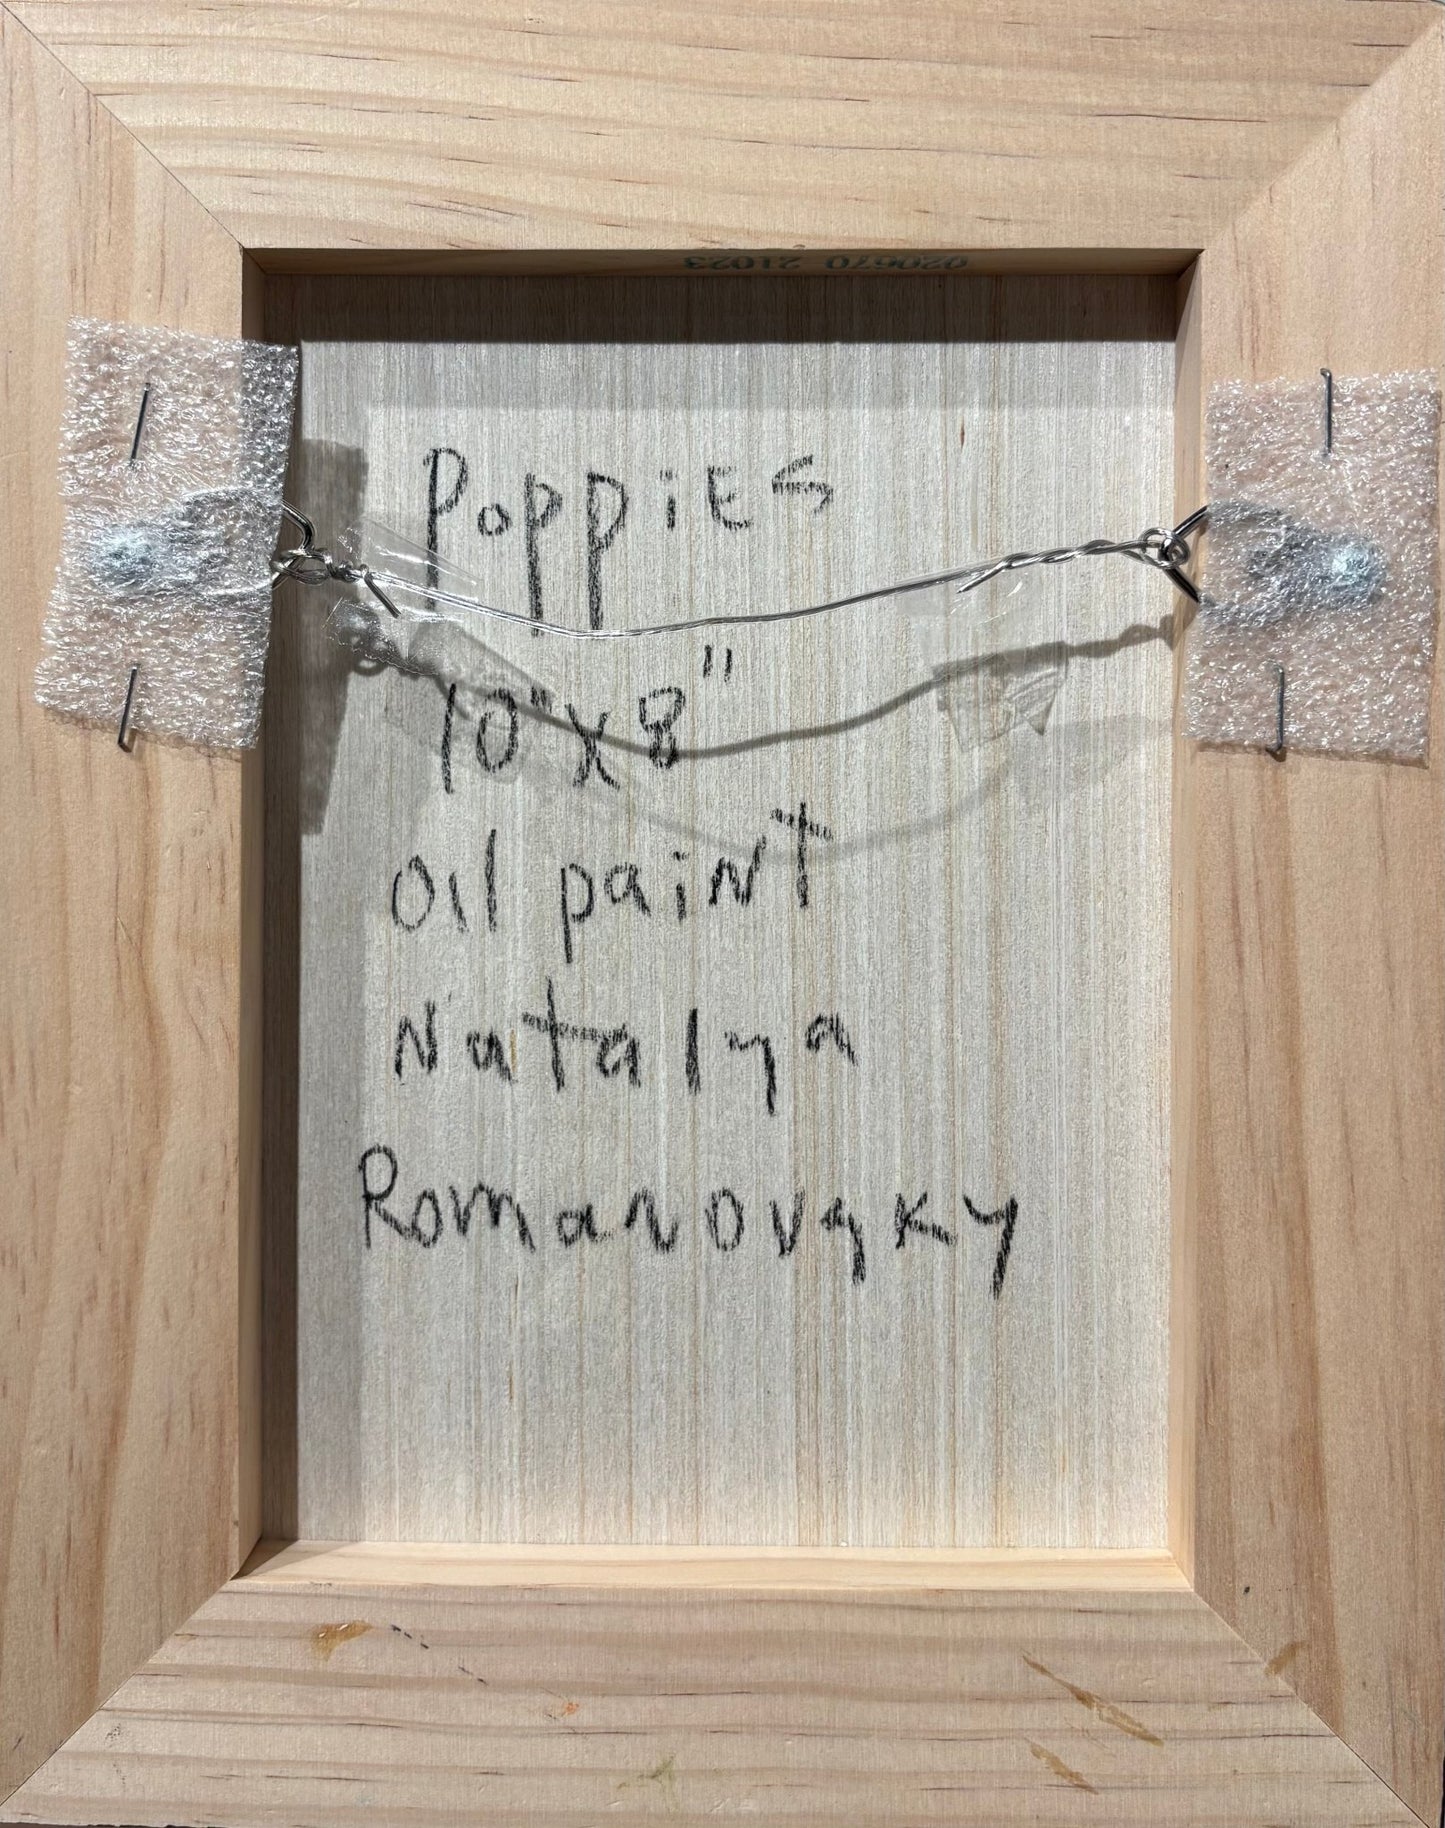 020670 21023
Poppies
10"x8"
Oil paint
Natalya
Romanovsky